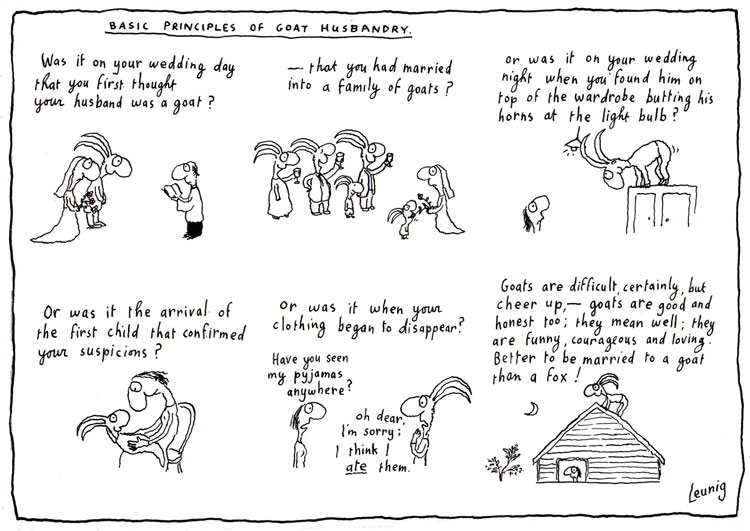 BASIC PRINCIPLES OF GOAT HUSBANDRY.
Was it on your wedding day
that you first thought
your husband was a goat?
— that you had married
into a family of goats?
or was it on your wedding
night when you found him on
top of the wardrobe butting his
horns at the light bulb?
Or was it the arrival of
the first child that confirmed
your suspicions?
Or was it when your
clothing began to disappear?
Have you seen
my pyjamas
anywhere?
oh dear,
I'm sorry;
I think I
ate them.
Goats are difficult, certainly, but
cheer up, — goats are good and
honest too; they mean well; they
are funny, courageous and loving.
Better to be married to a goat
than a fox!
Leunig